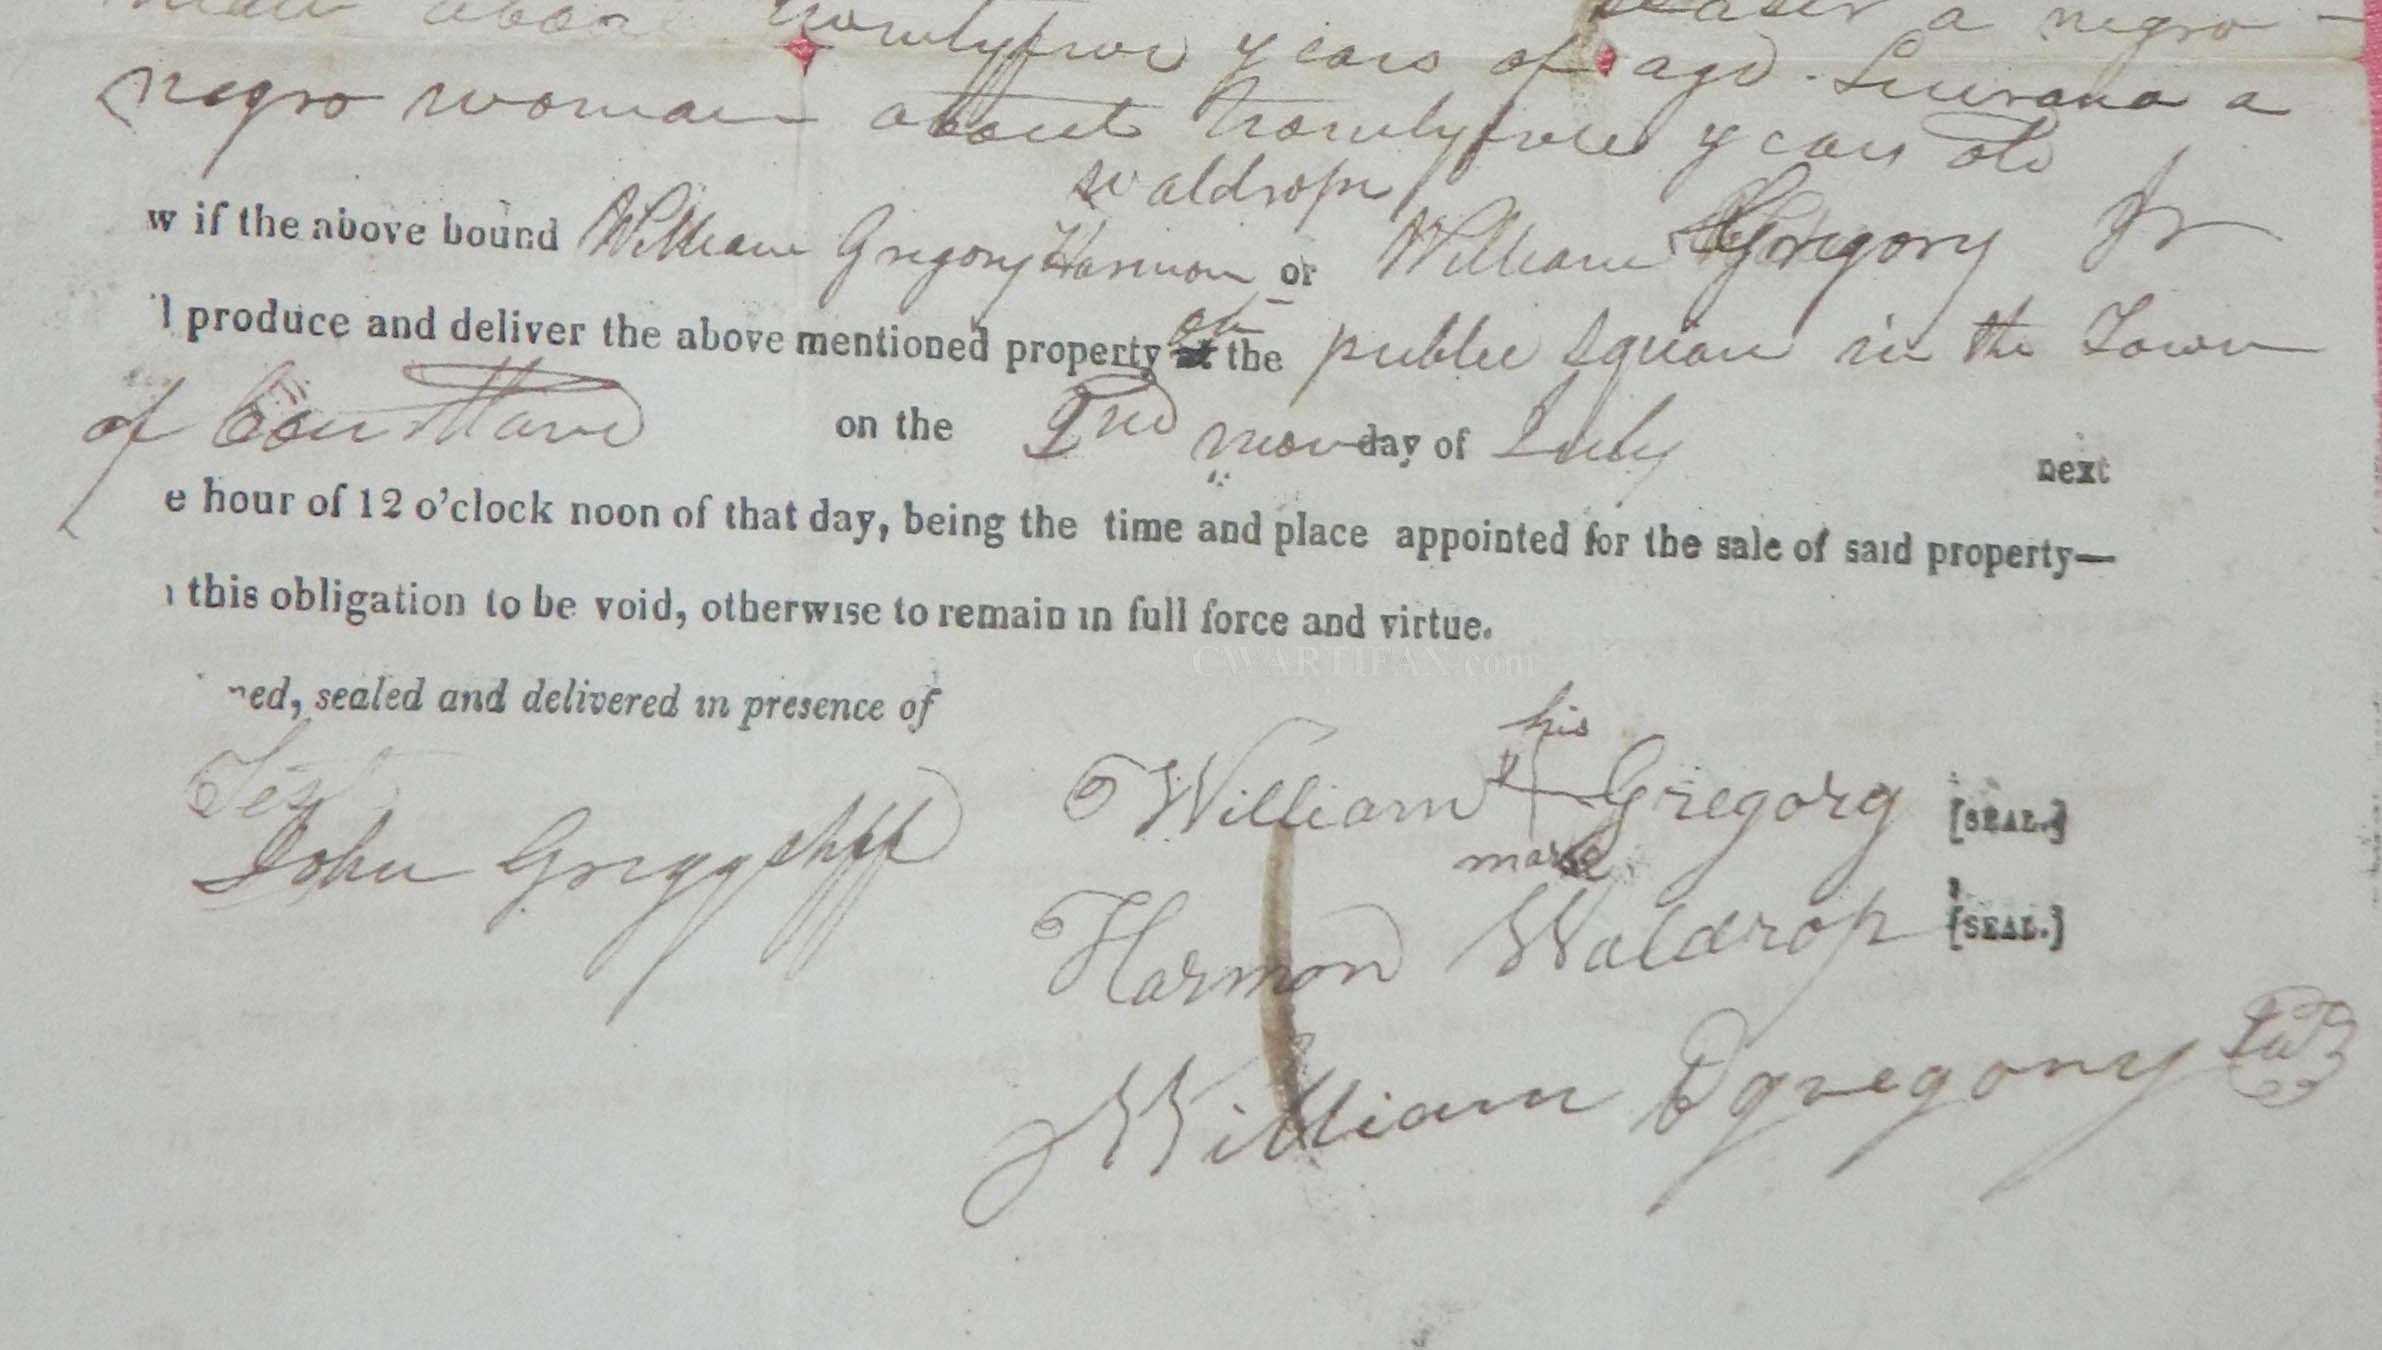 about twentyfive years of age. a negro
negro woman about twentyfive years old
waldrope
w if the above bound William Gregory Harmon or William Gregory Jr
l produce and deliver the above mentioned property on the public Square in the Town
of on the 2nd monday of July next
e hour of 12 o'clock noon of that day, being the time and place appointed for the sale of said property—
this obligation to be void, otherwise to remain in full force and virtue.
CWARTIFAX.com
ned, sealed and delivered in presence of
his
Test William Gregory [SEAL.]
John Grigg shff
mark
Harmon Waldrop [SEAL.]
William gregory